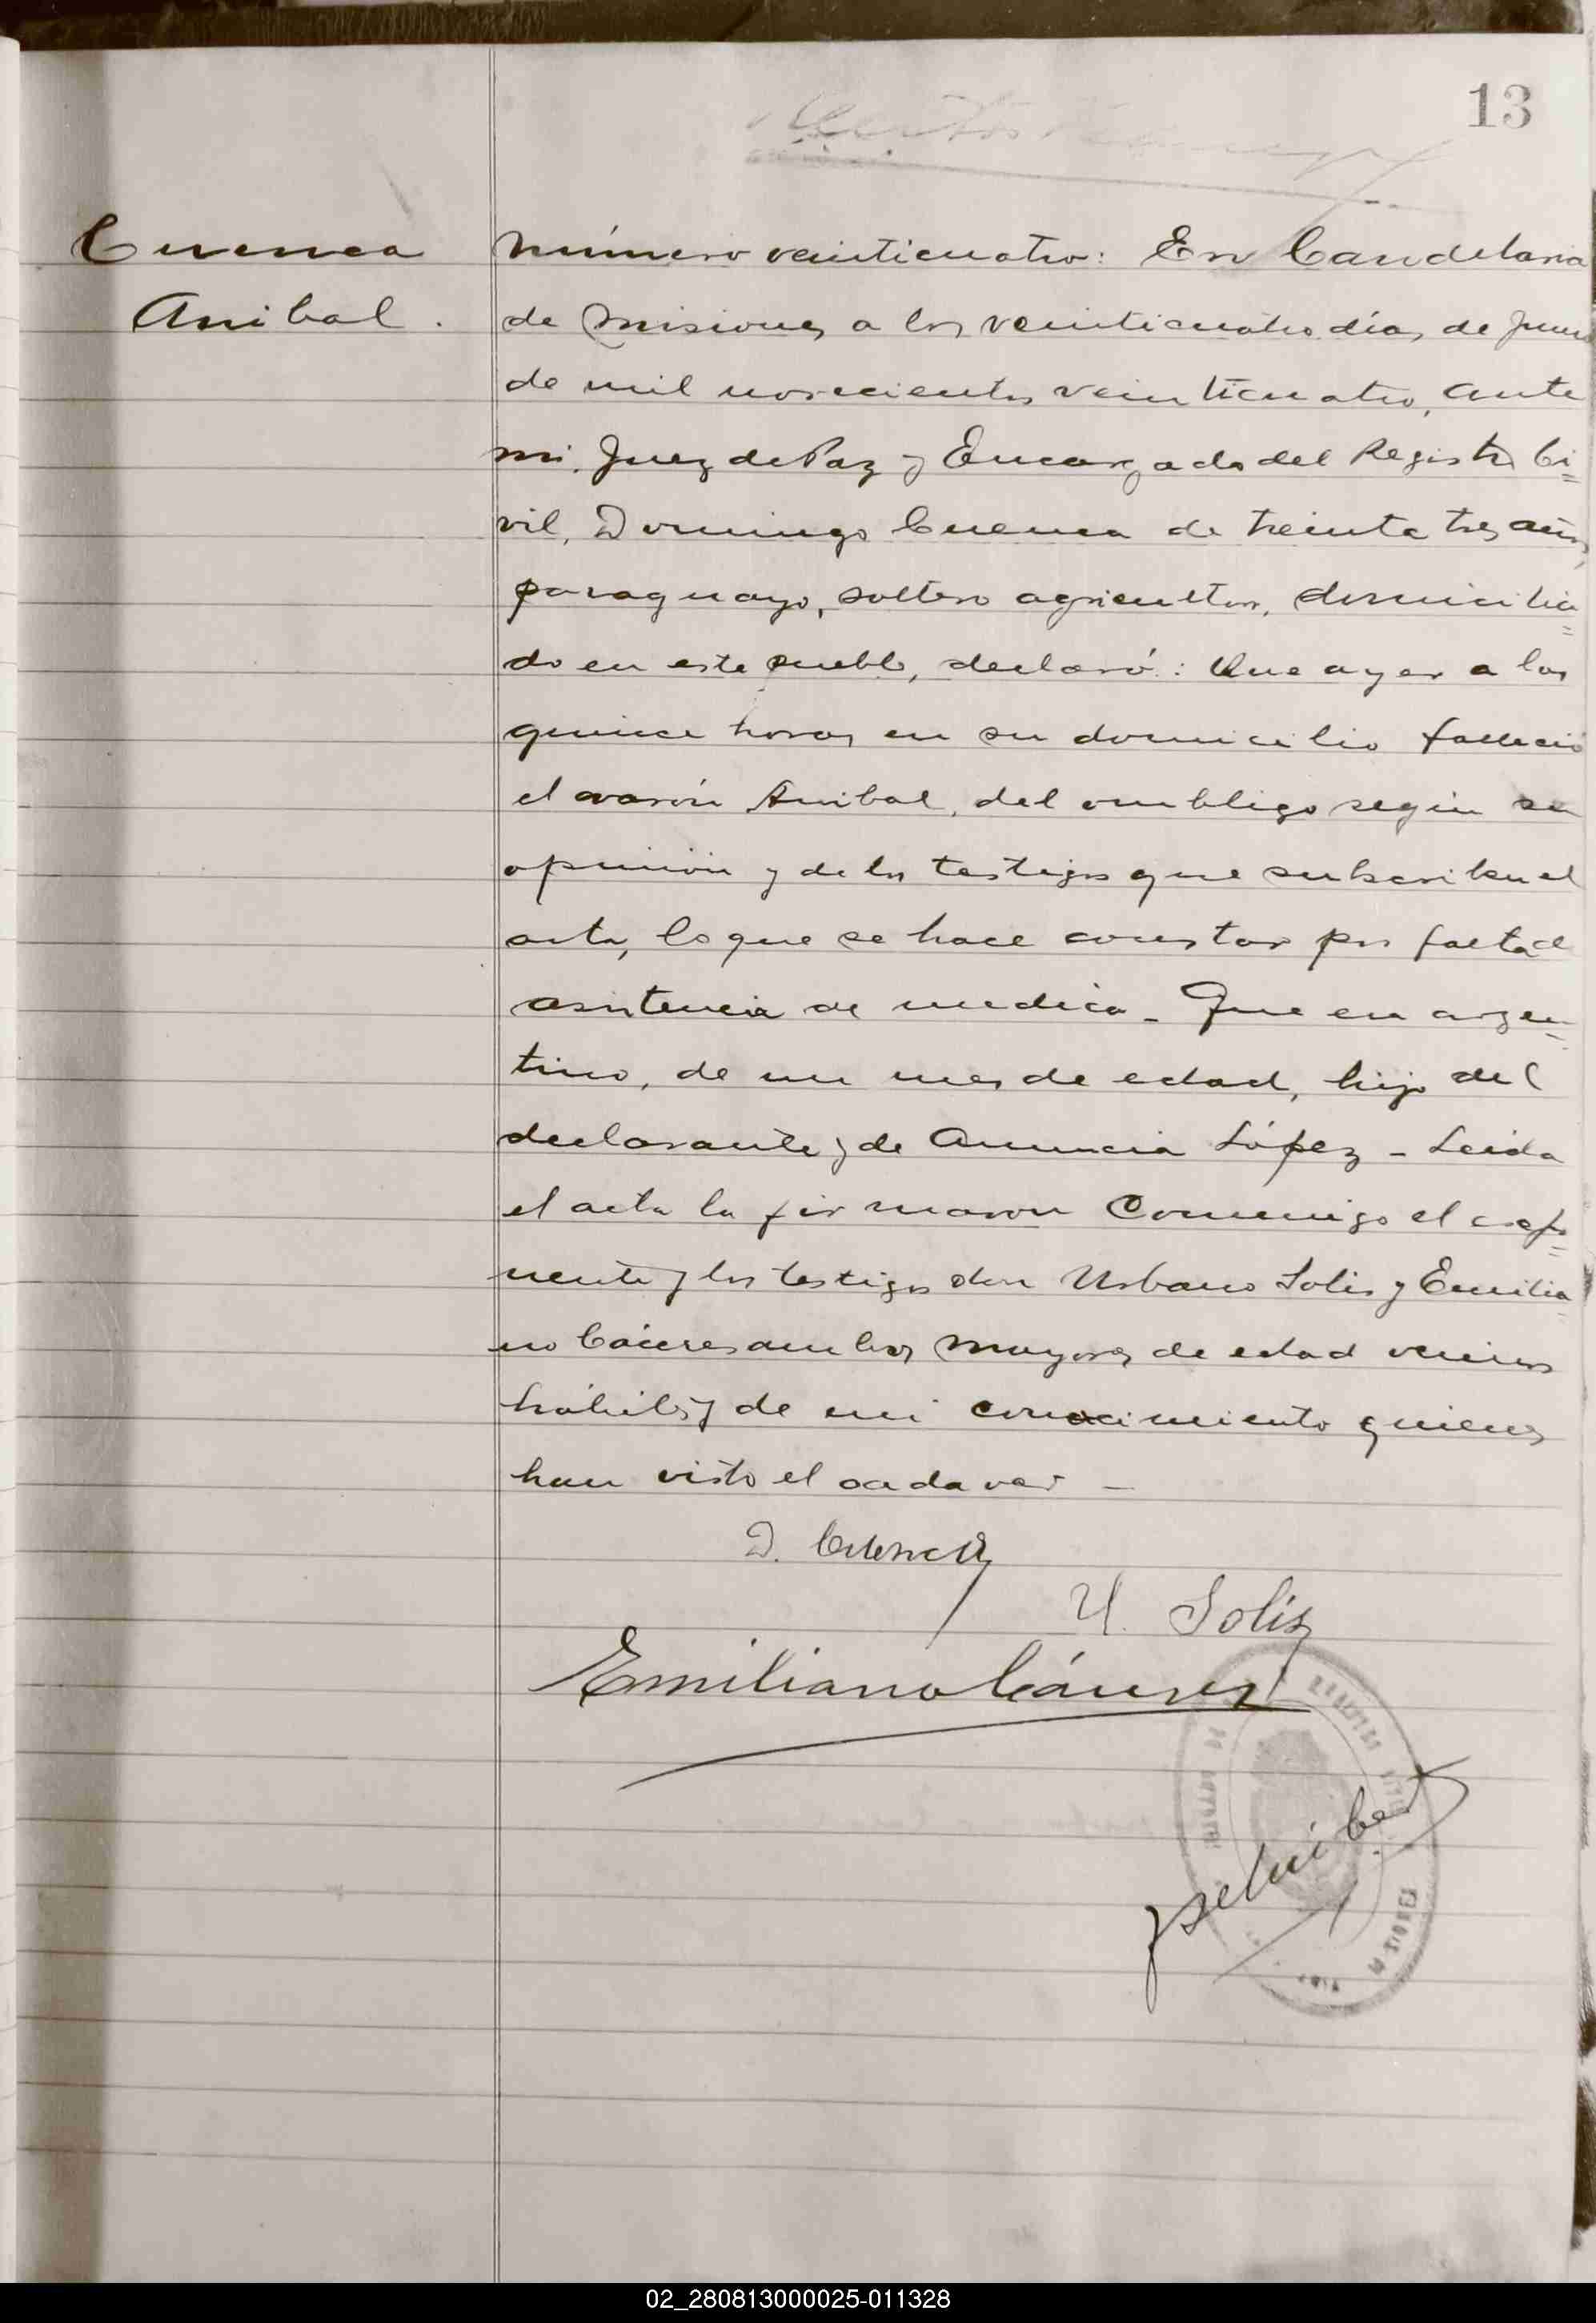 13
Cuenca
Anibal.
Número veinticuatro: En Candelaria
de Misiones a los veinticuatro días de
de mil novecientos veinticuatro, ante
mi, Juez de Paz y Encargado del Registro Ci=
vil, Domingo Cuenca de treinta tres años,
paraguayo, soltero agricultor, domicilia=
do en este pueblo, declaró: Que ayer a las
quince horas en su domicilio falleció
el varón Anibal, del ombligo según su
opinión y de los testigos que subscriben el
acta, lo que se hace constar por falta de
asistencia de medico - Que era argen=
tino, de un mes de edad, hijo del
declarante y de Anuncia López - Leida
el acta la firmaron conmigo el expo=
nente y los testigos don Urbano Solis y Emilia=
no Cáceres ambos mayores de edad vecinos
hábiles y de mi conocimiento quienes
han visto el cadaver -
D. Cuenca
U. Solis
Emiliano Cáceres
MISIONES
02_280813000025-011328